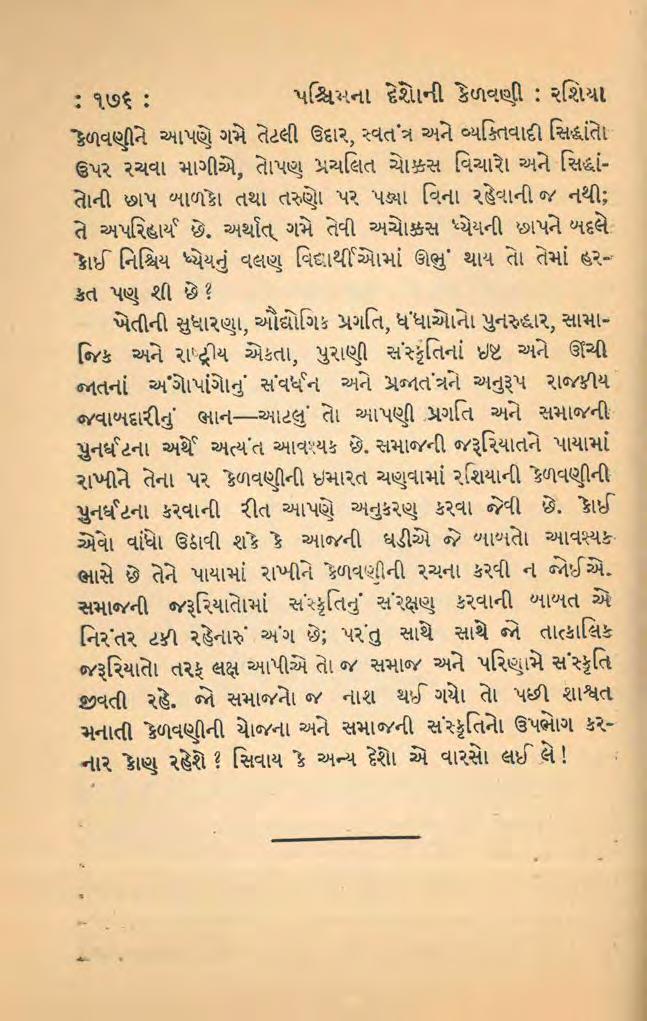 : ૧૭૬ : પશ્ચિમના દેશોની કેળવણી : રશિયા
કેળવણીને આપણે ગમે તેટલી ઉદાર, સ્વતંત્ર અને વ્યક્તિવાદી સિદ્ધાંતો
ઉપર રચવા માગીએ, તોપણ પ્રચલિત ચોક્કસ વિચારો અને સિદ્ધાં-
તોની છાપ બાળકો તથા તરુણો પર પડ્યા વિના રહેવાની જ નથી;
તે અપરિહાર્ય છે. અર્થાત્ ગમે તેવી અચોક્કસ ધ્યેયની છાપને બદલે
કોઈ નિશ્ચિય ધ્યેયનું વલણ વિદ્યાર્થીઓમાં ઊભું થાય તો તેમાં હર-
કત પણ શી છે ?
ખેતીની સુધારણા, ઔદ્યોગિક પ્રગતિ, ધંધાઓનો પુનરુદ્ધાર, સામા-
જિક અને રાષ્ટ્રીય એકતા, પુરાણી સંસ્કૃતિનાં ઇષ્ટ અને ઊંચી
જાતનાં અંગોપાંગોનું સંવર્ધન અને પ્રજાતંત્રને અનુરૂપ રાજકીય
જવાબદારીનું ભાન—આટલું તો આપણી પ્રગતિ અને સમાજની
પુનર્ઘટના અર્થે અત્યંત આવશ્યક છે. સમાજની જરૂરિયાતને પાયામાં
રાખીને તેના પર કેળવણીની ઇમારત ચણવામાં રશિયાની કેળવણીની
પુનર્ઘટના કરવાની રીત આપણે અનુકરણ કરવા જેવી છે. કોઈ
એવો વાંધો ઉઠાવી શકે કે આજની ઘડીએ જે બાબતો આવશ્યક
ભાસે છે તેને પાયામાં રાખીને કેળવણીની રચના કરવી ન જોઈએ.
સમાજની જરૂરિયાતોમાં સંસ્કૃતિનું સંરક્ષણ કરવાની બાબત એ
નિરંતર ટકી રહેનારું અંગ છે; પરંતુ સાથે સાથે જો તાત્કાલિક
જરૂરિયાતો તરફ લક્ષ આપીએ તો જ સમાજ અને પરિણામે સંસ્કૃતિ
જીવતી રહે. જો સમાજનો જ નાશ થઈ ગયો તો પછી શાશ્વત
મનાતી કેળવણીની યોજના અને સમાજની સંસ્કૃતિનો ઉપભોગ કર-
નાર કોણ રહેશે ? સિવાય કે અન્ય દેશો એ વારસો લઈ લે !